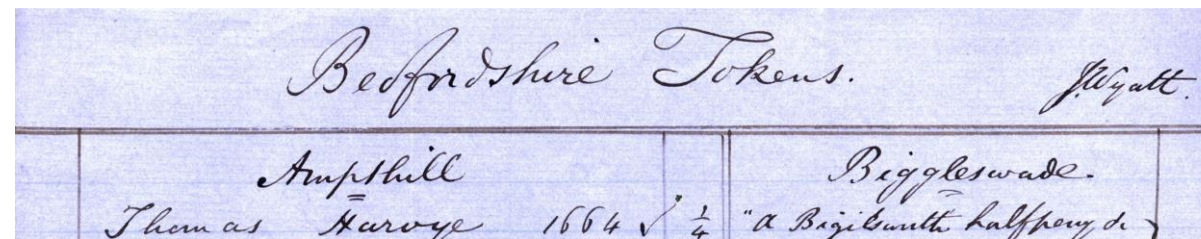 Bedfordshire Tokens.
J. Wyatt.
Ampthill
Thomas Harvye 1664 ✓ 1/4
Biggleswade.
"A halfpeny